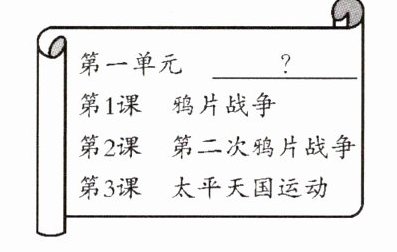 第一单元 ?
第1课 鸦片战争
第2课 第二次鸦片战争
第3课 太平天国运动